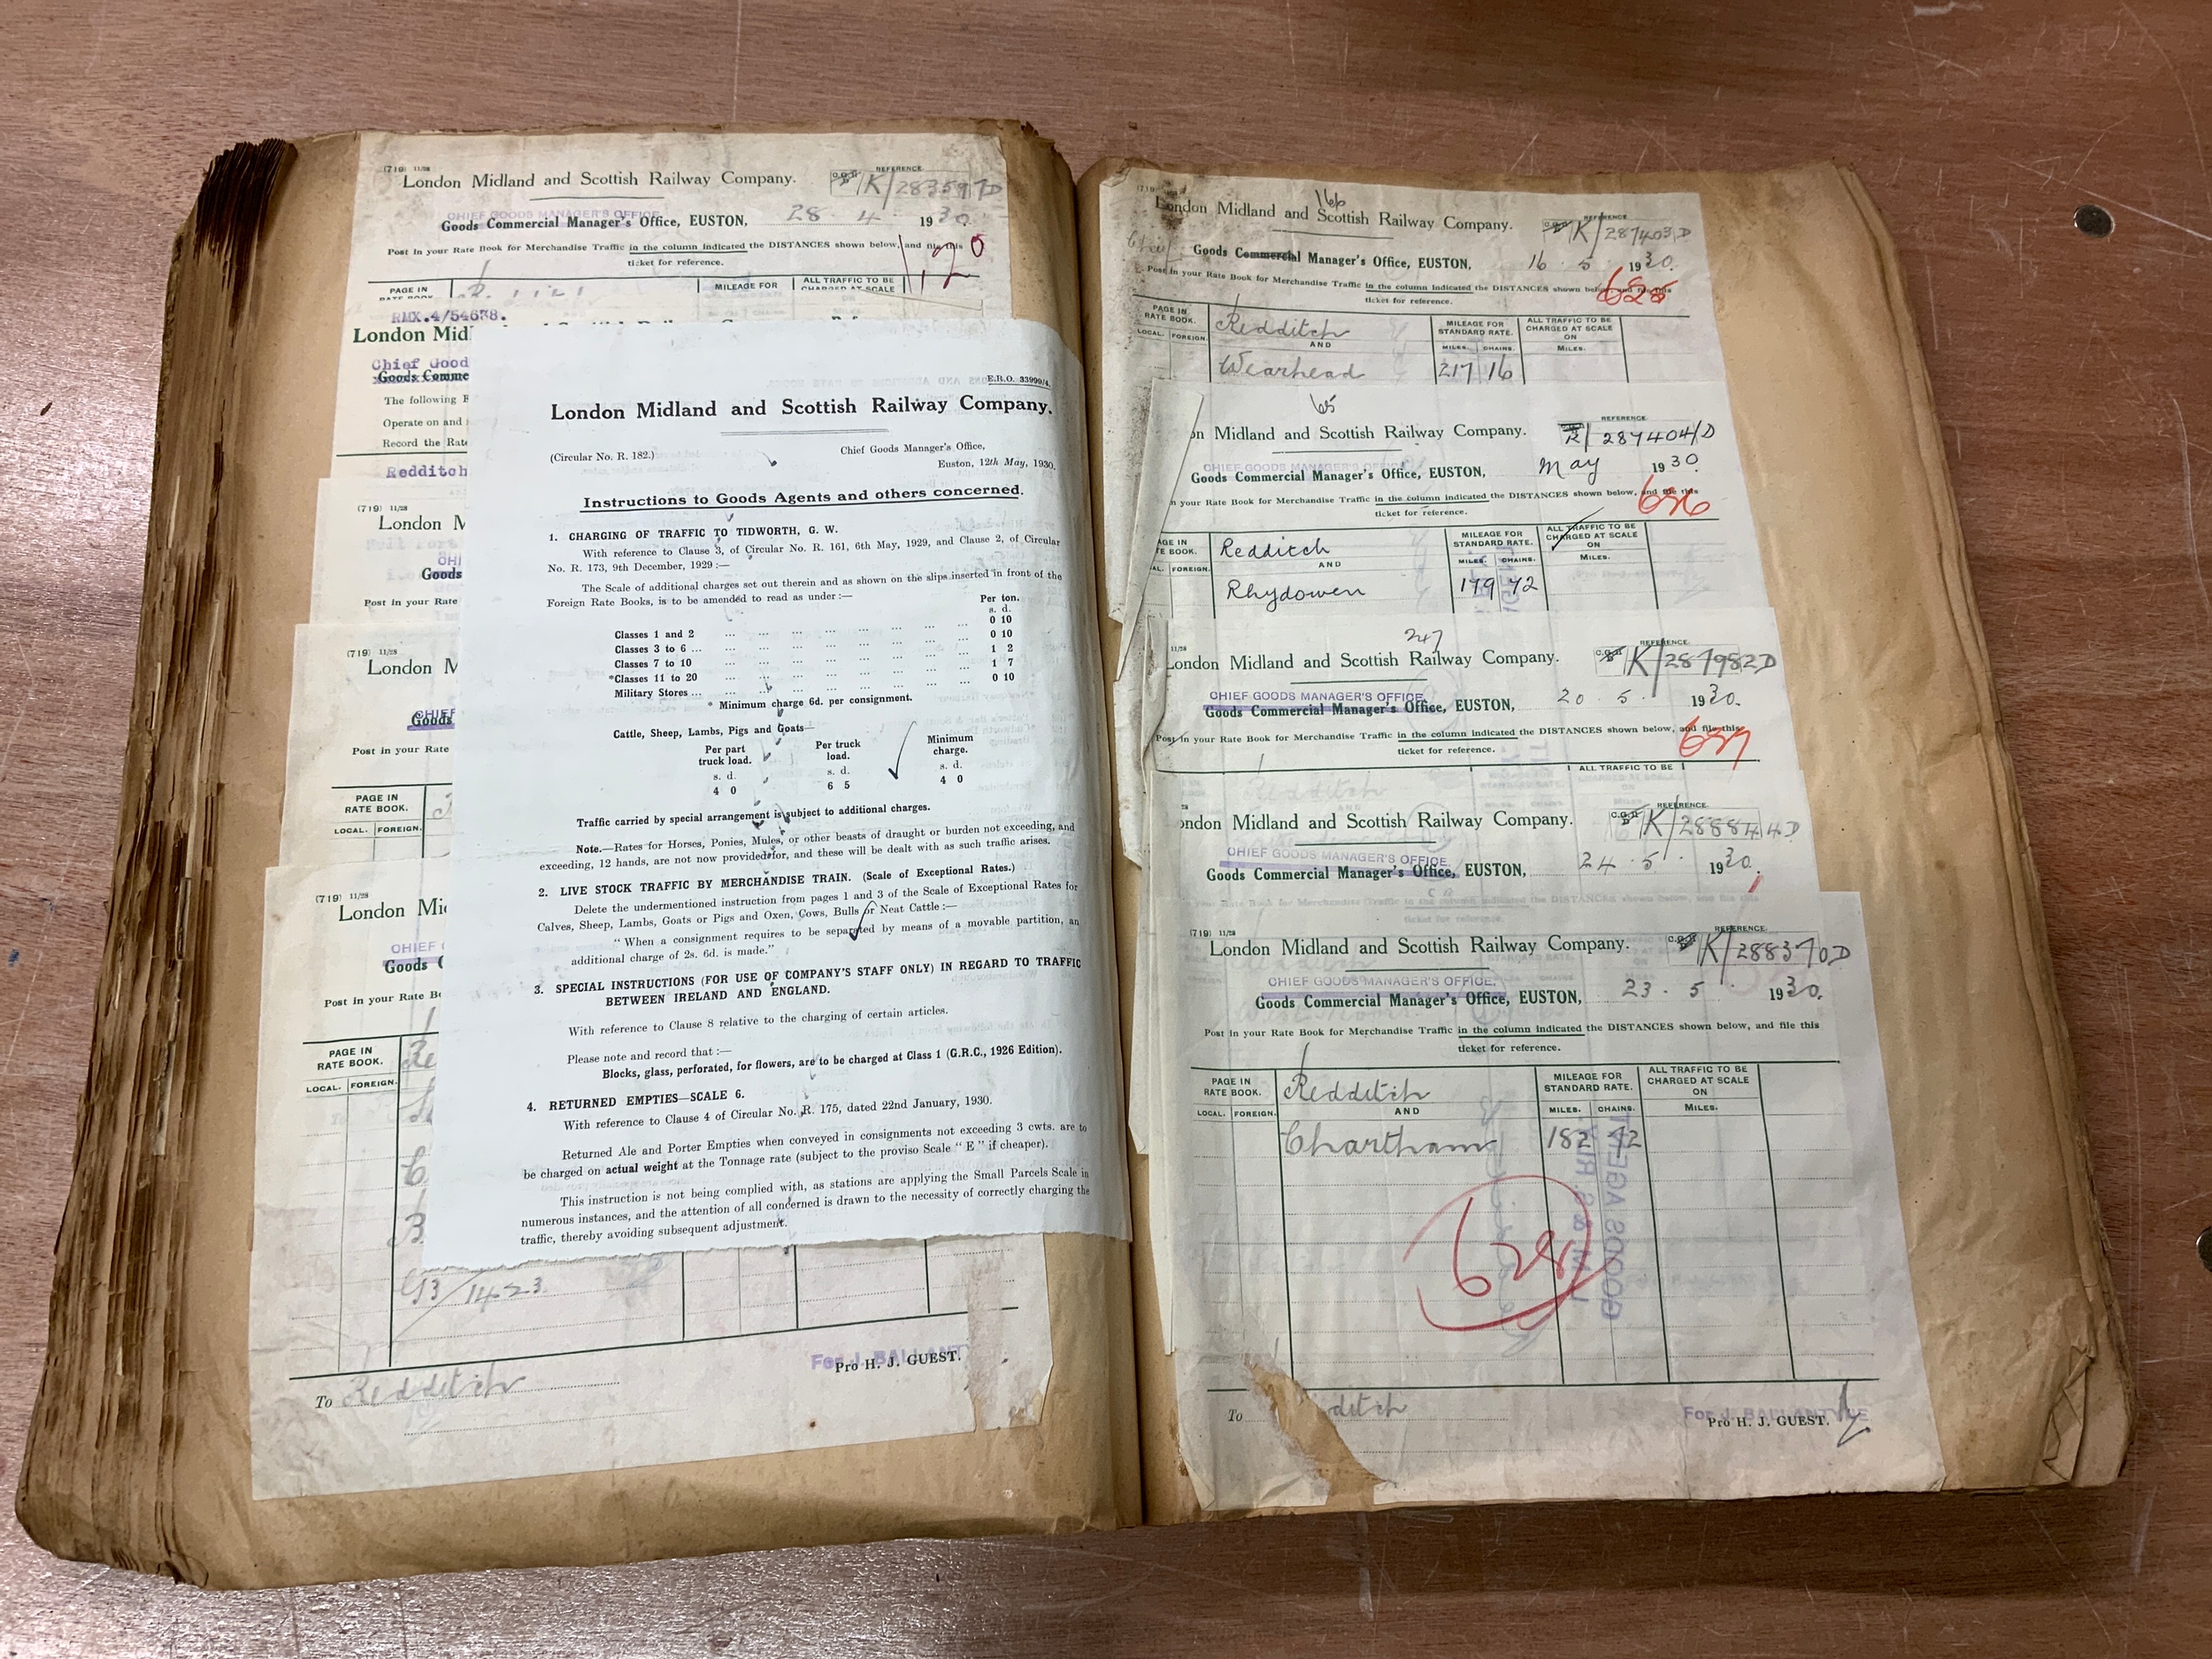 (719) 11/28
London Midland and Scottish Railway Company.
REFERENCE.
K/283597D
CHIEF GOODS MANAGER'S OFFICE
Goods Commercial Manager's Office, EUSTON, 28 . 4 . 1930.
Post in your Rate Book for Merchandise Traffic in the column indicated the DISTANCES shown below, and file this
ticket for reference.
PAGE IN
RATE BOOK
MILEAGE FOR
ALL TRAFFIC TO BE
CHARGED AT SCALE
RMX.4/54678.
London Mid
Chief Good
Goods Comme
The following
Operate on and
Record the Rate
Redditch
(719) 11/28
London M
CHI
Goods
Post in your Rate
(719) 11/28
London M
CHIEF
Goods
Post in your Rate
PAGE IN
RATE BOOK.
LOCAL. FOREIGN.
(719) 11/28
London Mi
CHIEF
Goods
Post in your Rate
PAGE IN
RATE BOOK.
LOCAL. FOREIGN.
G3/1423
For J. BALLANT
Pro H. J. GUEST.
To Redditch
E.R.O. 33999/4.
London Midland and Scottish Railway Company.
(Circular No. R. 182.)
Chief Goods Manager's Office,
Euston, 12th May, 1930.
Instructions to Goods Agents and others concerned.
1. CHARGING OF TRAFFIC TO TIDWORTH, G. W.
With reference to Clause 3, of Circular No. R. 161, 6th May, 1929, and Clause 2, of Circular
No. R. 173, 9th December, 1929 :—
The Scale of additional charges set out therein and as shown on the slips inserted in front of the
Foreign Rate Books, is to be amended to read as under :—
Per ton.
s. d.
Classes 1 and 2 ... ... ... ... ... ... ... ... 0 10
Classes 3 to 6 ... ... ... ... ... ... ... ... 0 10
Classes 7 to 10 ... ... ... ... ... ... ... ... 1 2
*Classes 11 to 20 ... ... ... ... ... ... ... ... 1 7
Military Stores ... ... ... ... ... ... ... ... 0 10
* Minimum charge 6d. per consignment.
Cattle, Sheep, Lambs, Pigs and Goats—
Per part Per truck Minimum
truck load. load. charge.
s. d. s. d. s. d.
4 0 6 5 4 0
Traffic carried by special arrangement is subject to additional charges.
Note.—Rates for Horses, Ponies, Mules, or other beasts of draught or burden not exceeding, and
exceeding, 12 hands, are not now provided for, and these will be dealt with as such traffic arises.
2. LIVE STOCK TRAFFIC BY MERCHANDISE TRAIN. (Scale of Exceptional Rates.)
Delete the undermentioned instruction from pages 1 and 3 of the Scale of Exceptional Rates for
Calves, Sheep, Lambs, Goats or Pigs and Oxen, Cows, Bulls or Neat Cattle :—
" When a consignment requires to be separated by means of a movable partition, an
additional charge of 2s. 6d. is made."
3. SPECIAL INSTRUCTIONS (FOR USE OF COMPANY'S STAFF ONLY) IN REGARD TO TRAFFIC
BETWEEN IRELAND AND ENGLAND.
With reference to Clause 8 relative to the charging of certain articles.
Please note and record that :—
Blocks, glass, perforated, for flowers, are to be charged at Class 1 (G.R.C., 1926 Edition).
4. RETURNED EMPTIES—SCALE 6.
With reference to Clause 4 of Circular No. R. 175, dated 22nd January, 1930.
Returned Ale and Porter Empties when conveyed in consignments not exceeding 3 cwts. are to
be charged on actual weight at the Tonnage rate (subject to the proviso Scale " E " if cheaper).
This instruction is not being complied with, as stations are applying the Small Parcels Scale in
numerous instances, and the attention of all concerned is drawn to the necessity of correctly charging the
traffic, thereby avoiding subsequent adjustment.
(719
166
London Midland and Scottish Railway Company.
REFERENCE
K/287403D
Goods Commercial Manager's Office, EUSTON, 16 . 5 . 1930.
Post in your Rate Book for Merchandise Traffic in the column indicated the DISTANCES shown below, and file this
ticket for reference.
625
PAGE IN
RATE BOOK.
LOCAL. FOREIGN.
Redditch
AND
Wearhead
MILEAGE FOR
STANDARD RATE.
MILES. CHAINS.
217 16
ALL TRAFFIC TO BE
CHARGED AT SCALE
ON
MILES.
65
on Midland and Scottish Railway Company.
REFERENCE.
R/287404/D
CHIEF GOODS MANAGER'S OFFICE
Goods Commercial Manager's Office, EUSTON, May 1930.
n your Rate Book for Merchandise Traffic in the column indicated the DISTANCES shown below, and file this
ticket for reference.
626
AGE IN
TE BOOK.
AL. FOREIGN.
Redditch
AND
Rhydowen
MILEAGE FOR
STANDARD RATE.
MILES. CHAINS.
179 72
ALL TRAFFIC TO BE
CHARGED AT SCALE
ON
MILES.
11/28
247
London Midland and Scottish Railway Company.
REFERENCE.
K/287982D
CHIEF GOODS MANAGER'S OFFICE.
Goods Commercial Manager's Office, EUSTON, 20 5 . 1930.
Post in your Rate Book for Merchandise Traffic in the column indicated the DISTANCES shown below, and file this
ticket for reference.
627
ALL TRAFFIC TO BE
ondon Midland and Scottish Railway Company.
REFERENCE.
K/288844D
CHIEF GOODS MANAGER'S OFFICE.
Goods Commercial Manager's Office, EUSTON, 24 . 5 . 1930.
(719) 11/28
London Midland and Scottish Railway Company.
REFERENCE.
K/288370D
CHIEF GOODS MANAGER'S OFFICE.
Goods Commercial Manager's Office, EUSTON, 23 . 5 . 1930.
Post in your Rate Book for Merchandise Traffic in the column indicated the DISTANCES shown below, and file this
ticket for reference.
PAGE IN
RATE BOOK.
LOCAL. FOREIGN.
Redditch
AND
Chartham
MILEAGE FOR
STANDARD RATE.
MILES. CHAINS.
182 72
ALL TRAFFIC TO BE
CHARGED AT SCALE
ON
MILES.
628
GOODS AGENT
L. M. & S. RLY
To ditch
For J. BALLANTYNE
Pro H. J. GUEST.